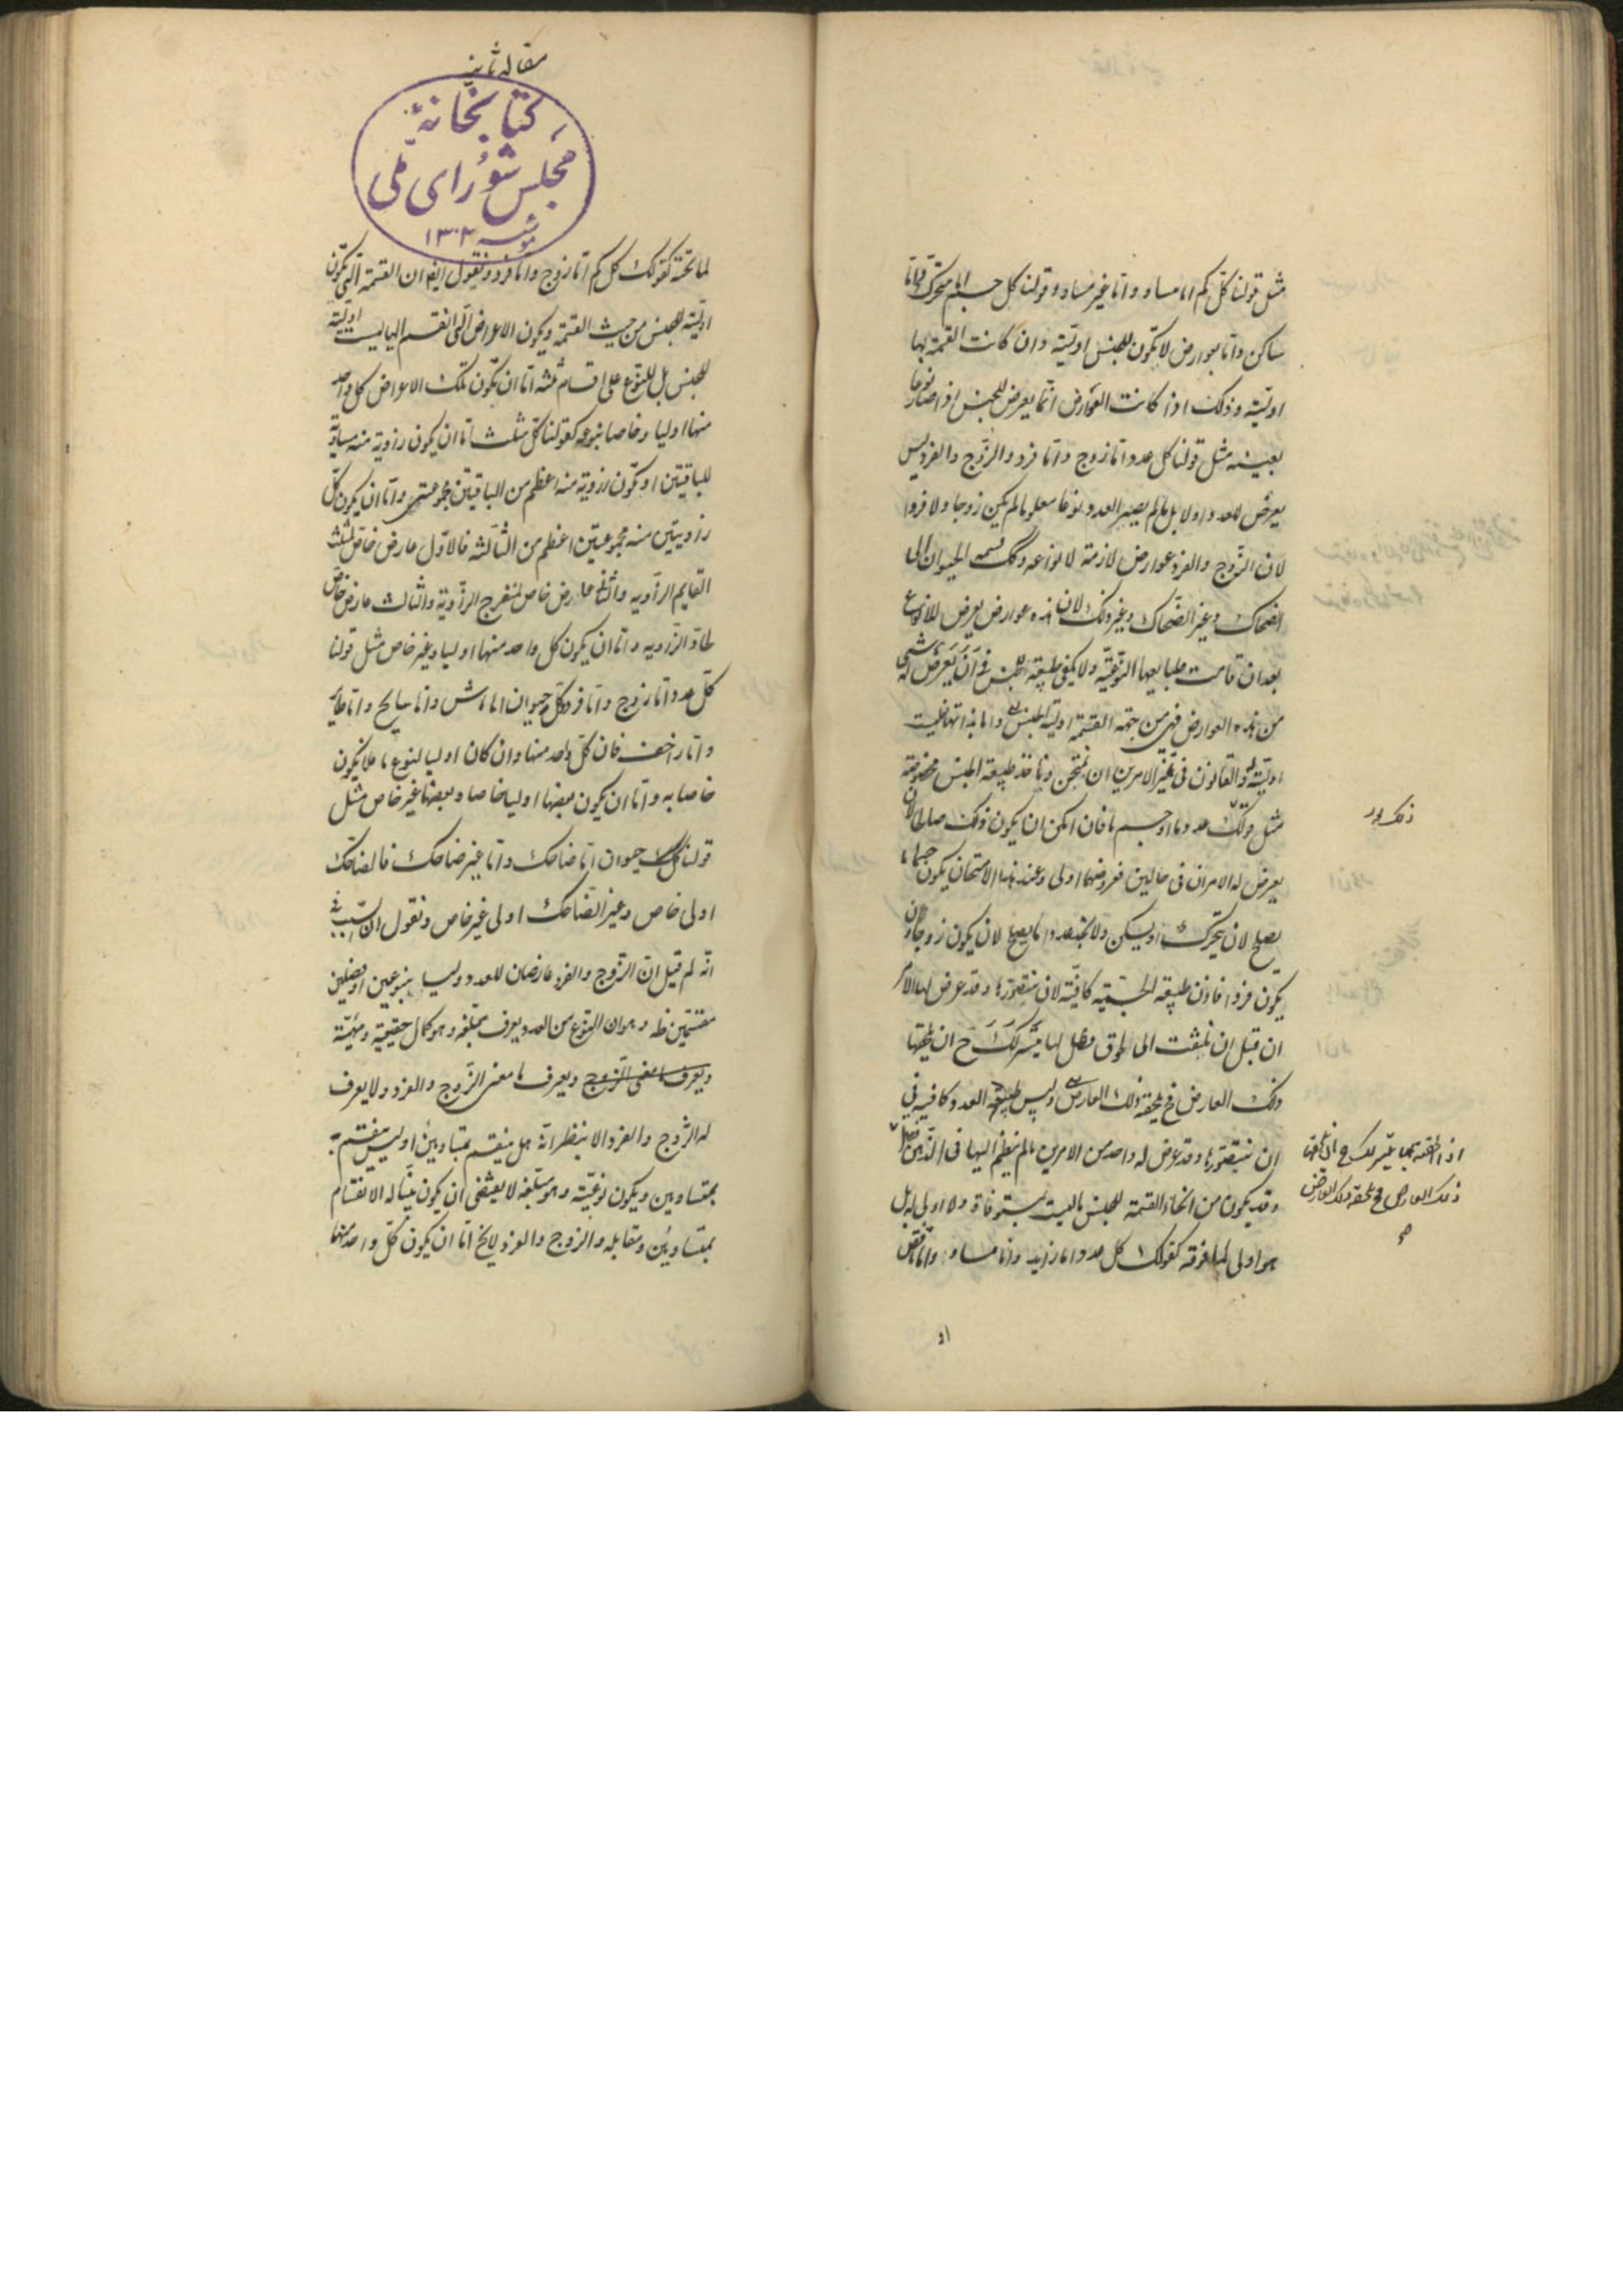 مثل قولنا كل كم اما مساو واما غير مساو وقولنا كل جسم اما متحرك واما
ساكن واما بعوارض لا تكون للجنس اولية وان كانت القسمة بها
اولية وذلك اذا كانت العوارض انما يعرض للجنس اذا صار نوعا
بعينه مثل قولنا كل عدد اما زوج واما فرد والزوج والفرد ليس
يعرض للعدد اولا بل ما لم يصير العدد نوعا معلوما لم يكن زوجا ولا فردا
لان الزوج والفرد عوارض لازمة لانواعه وكك قسمه الحيوان الى
الضحاك وغير الضحاك وغير ذلك لان هذه عوارض يعرض للانواع
بعد ان قامت طبايعها النوعية ولا يكفى طبيعة الجنس فى ان يعرض له شى
من هذه العوارض فهى من جهة القسمة اولية للجنس واما بذاتها فليست
اولية له والقانون فى تميز الامرين ان تمتحن وناخذ طبيعة الجنس مخصوصة
مثل قولك عدد ما او جسم ما فان امكن ان يكون ذلك صالحا لان
يعرض له الامران فى حالين فعروضهما اولى وعند هذا الامتحان يكون جسم ما
يصلح لان يتحرك او يسكن ولا تجد عددا ما يصلح لان يكون زوجا وان
يكون فردا فاذن طبيعة الجسمية كافية لان نتصورها وقد عرض لها الامر
ان قبل ان تلتفت الى لحوق فصل لها يتيسر لك ح ان يلحقها
ذلك العارض فح يلحقه ذلك العارض وليس طبيعة العدد كافية فى
ان نتصورها وقد عرض له واحد من الامرين ما لم ينظم اليها فى الذهن فصل
وقد يكون من انحاء القسمة للجنس ما ليست بمستوفاة ولا اولى له بل
هو اولى لما فوقه كقولك كل عدد اما زايد واما مساو واما ناقص
ذلك
ذلك العارض فح يلحقه ذلك العارض
صح
او
مقاله ثانيه
كتابخانهٔ
مجلس شورای ملی
١٣٠٢
لما تحته كقولك كل كم اما زوج واما فرد ونقول ايضا ان القسمة التى تكون
اولية للجنس من حيث القسمة ويكون الاعراض التى انقسم اليها ليست اولية
للجنس بل للنوع على اقسام ثلثه اما ان تكون تلك الاعراض كل واحد
منها اوليا وخاصا بنوعه كقولنا كل مثلث اما ان يكون زاوية منه مساوية
للباقيتين او تكون زاوية منه اعظم من الباقيتين مجموعتين واما ان يكون كل
زاويتين منه مجموعتين اعظم من الثالثه فالاول عارض خاص لمثلث
القايم الزاويه والثانى عارض خاص لمنفرج الزاوية والثالث عارض خاص
لحاد الزاويه واما ان يكون كل واحد منها اوليا وغير خاص مثل قولنا
كل عدد اما زوج واما فرد وكل حيوان اما ماش واما سابح واما طاير
واما زاحف فان كل واحد منها وان كان اوليا لنوع ما فلا يكون
خاصا به واما ان يكون بعضها اوليا خاصا وبعضها غير خاص مثل
قولنا كل حيوان اما ضاحك واما غير ضاحك فالضاحك
اولى خاص وغير الضاحك اولى غير خاص ونقول ان السبب فى
انه لم قيل ان الزوج والفرد عارضان للعدد وليسا بنوعين او فصلين
مقسمين له وهو ان النوع من العدد يعرف بمبلغه وهو كمال حقيقية ومهيته
ويعرف ما معنى الزوج ويعرف ما معنى الزوج والفرد ولا يعرف
له الزوج والفرد الا بنظر انه هل ينقسم بمتساويين او ليس ينقسم
بمتساويين ويكون نوعيته وهو مبلغه لا يقتضى ان يكون بينا له الانقسام
بمتساويين ومقابله والزوج والفرد لا يخ اما ان يكون كل واحد منها